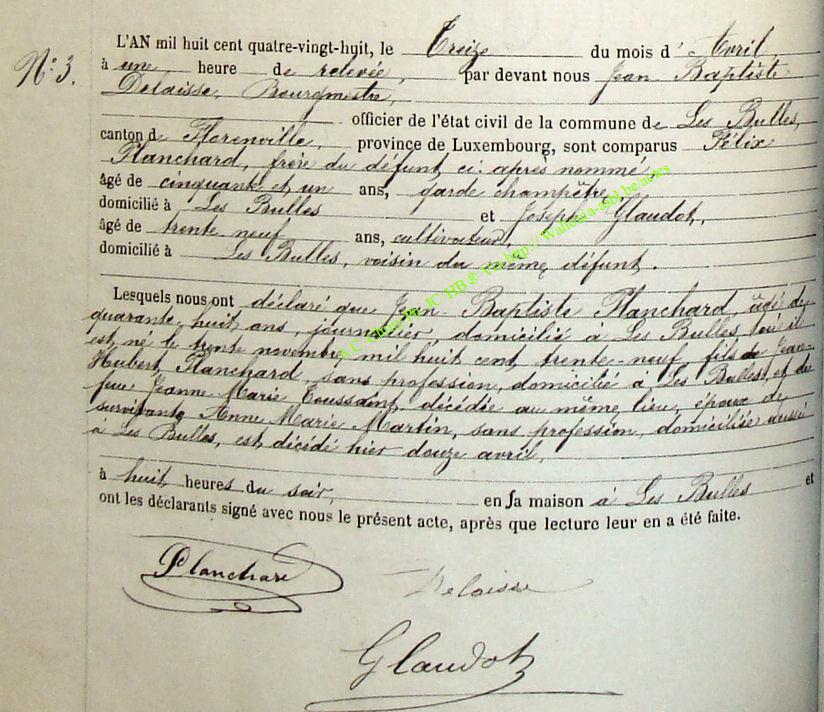 L'AN mil huit cent quatre-vingt-huit, le Treize du mois d'Avril,
N° 3. à une heure de relevée, par devant nous Jean Baptiste
Delaisse, Bourgmestre,
officier de l'état civil de la commune de Les Bulles,
canton de Florenville, province de Luxembourg, sont comparus Félix
Planchard, frère du défunt ci-après nommé,
âgé de cinquante et un ans, garde champêtre,
domicilié à Les Bulles et Joseph Glaudot,
âgé de trente neuf ans, cultivateur,
domicilié à Les Bulles, voisin du même défunt.
Lesquels nous ont déclaré que Jean Baptiste Planchard, âgé de
quarante-huit ans, journalier, domicilié à Les Bulles, où il
est né le trente novembre mil huit cent trente-neuf, fils de Jean-
Hubert Planchard, sans profession, domicilié à Les Bulles, et de
feue Jeanne Marie Toussaint, décédée au même lieu, époux de
survivante Anne Marie Martin, sans profession, domiciliée aussi
à Les Bulles, est décédé hier douze avril,
à huit heures du soir, en sa maison à Les Bulles et
ont les déclarants signé avec nous le présent acte, après que lecture leur en a été faite.
Planchard Delaisse
Glaudot